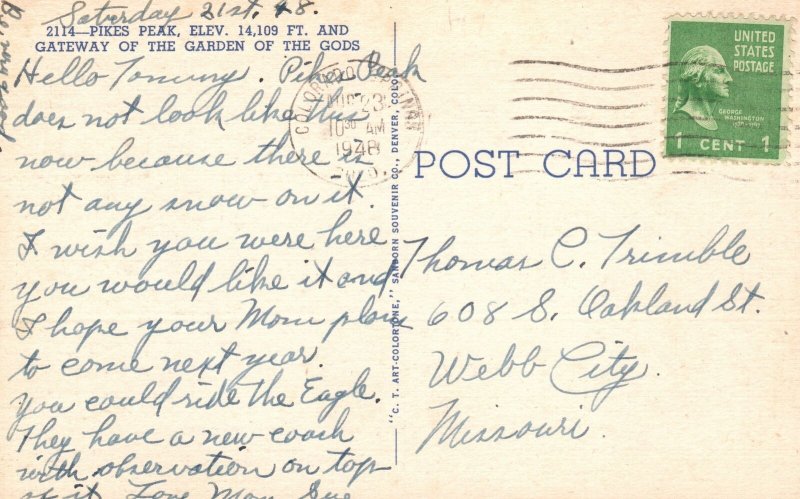 Saturday 21st, 48.
2114—PIKES PEAK, ELEV. 14,109 FT. AND
GATEWAY OF THE GARDEN OF THE GODS
Hello Tommy. Pikes Peak
does not look like this
now because there is
not any snow on it.
I wish you were here
you would like it and
I hope your Mom plans
to come next year.
You could ride the Eagle.
They have a new coach
with observation on top
of it. Love Mom Sue
COLORADO
AUG 23
10 30 AM
1948
COLO.
"C. T. ART-COLORTONE," SANBORN SOUVENIR CO., DENVER, COLO.
POST CARD
UNITED
STATES
POSTAGE
GEORGE
WASHINGTON
1 CENT 1
Thomas C. Trimble
608 S. Oakland St.
Webb City.
Missouri.